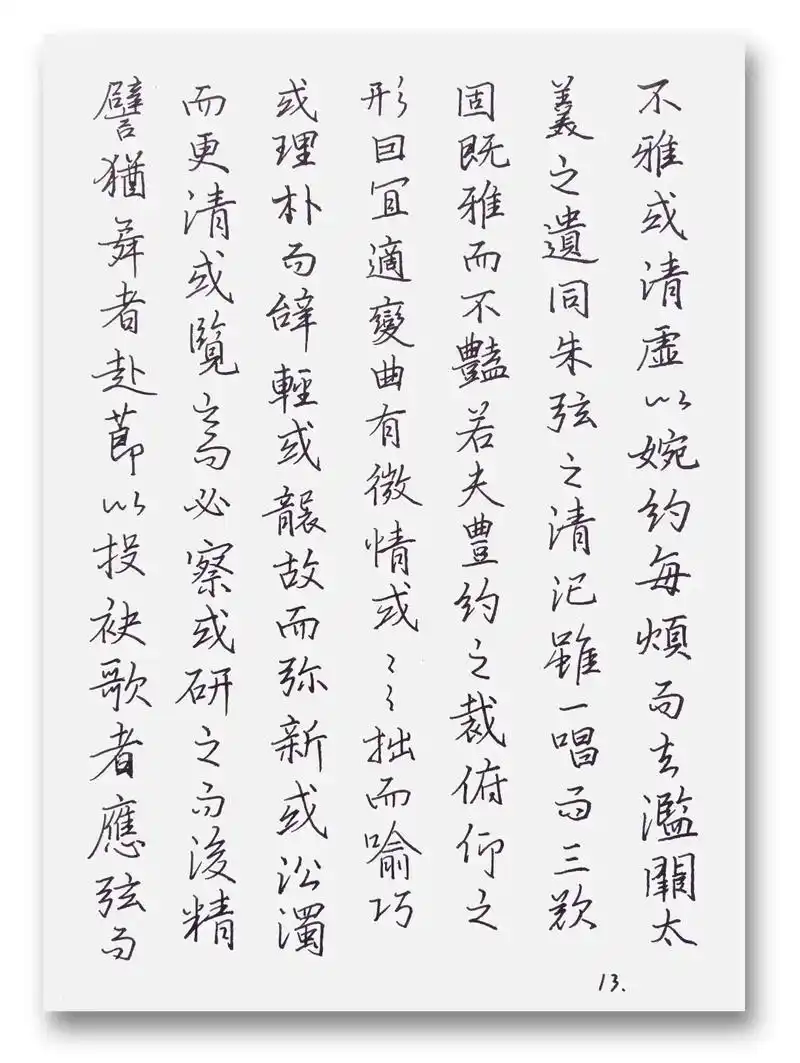 不雅或清虛以婉约每煩而去濫闕太
羙之遺同朱弦之清汜雖一唱而三歎
固既雅而不豔若夫豐约之裁俯仰之
形因宜適變曲有微情或〻〻拙而喻巧
或理朴而辝輕或襲故而弥新或沿濁
而更清或覽之而必察或研之而後精
譬猶舞者赴節以投袂歌者應弦而
13.